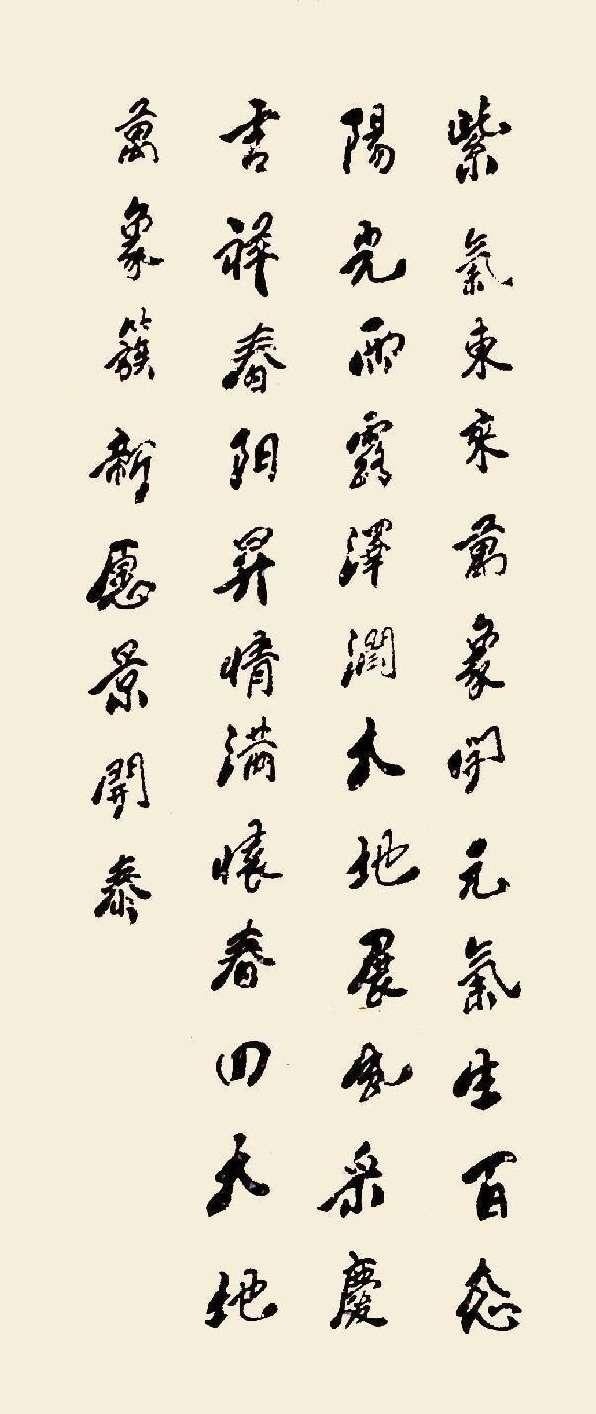 紫氣東來萬象開元氣生百态
陽光雨露澤潤大地展风采慶
吉祥春阳昇情满懷春回大地
萬象簇新愿景開泰